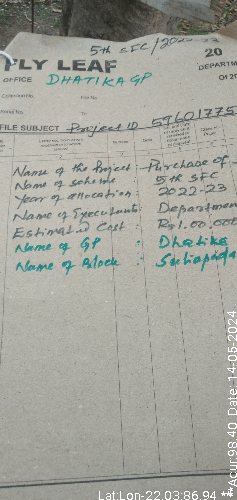 5th SFC/2022-23
FLY LEAF 20
DEPARTM
OFFICE DHATIKA GP Of 20
Collection No. File No.
Serial No. To
FILE SUBJECT Project ID 59601775
Name of the Project :- Purchase of
Name of scheme : 5th SFC
Year of allocation : 2022-23
Name of Executant : Departmen
Estimated Cost : Rs 1.00,000
Name of GP : Dhatika
Name of Block : Suliapada
Lat:Lon-22.03:86.94 **Acur:98.40 Date:14-05-2024